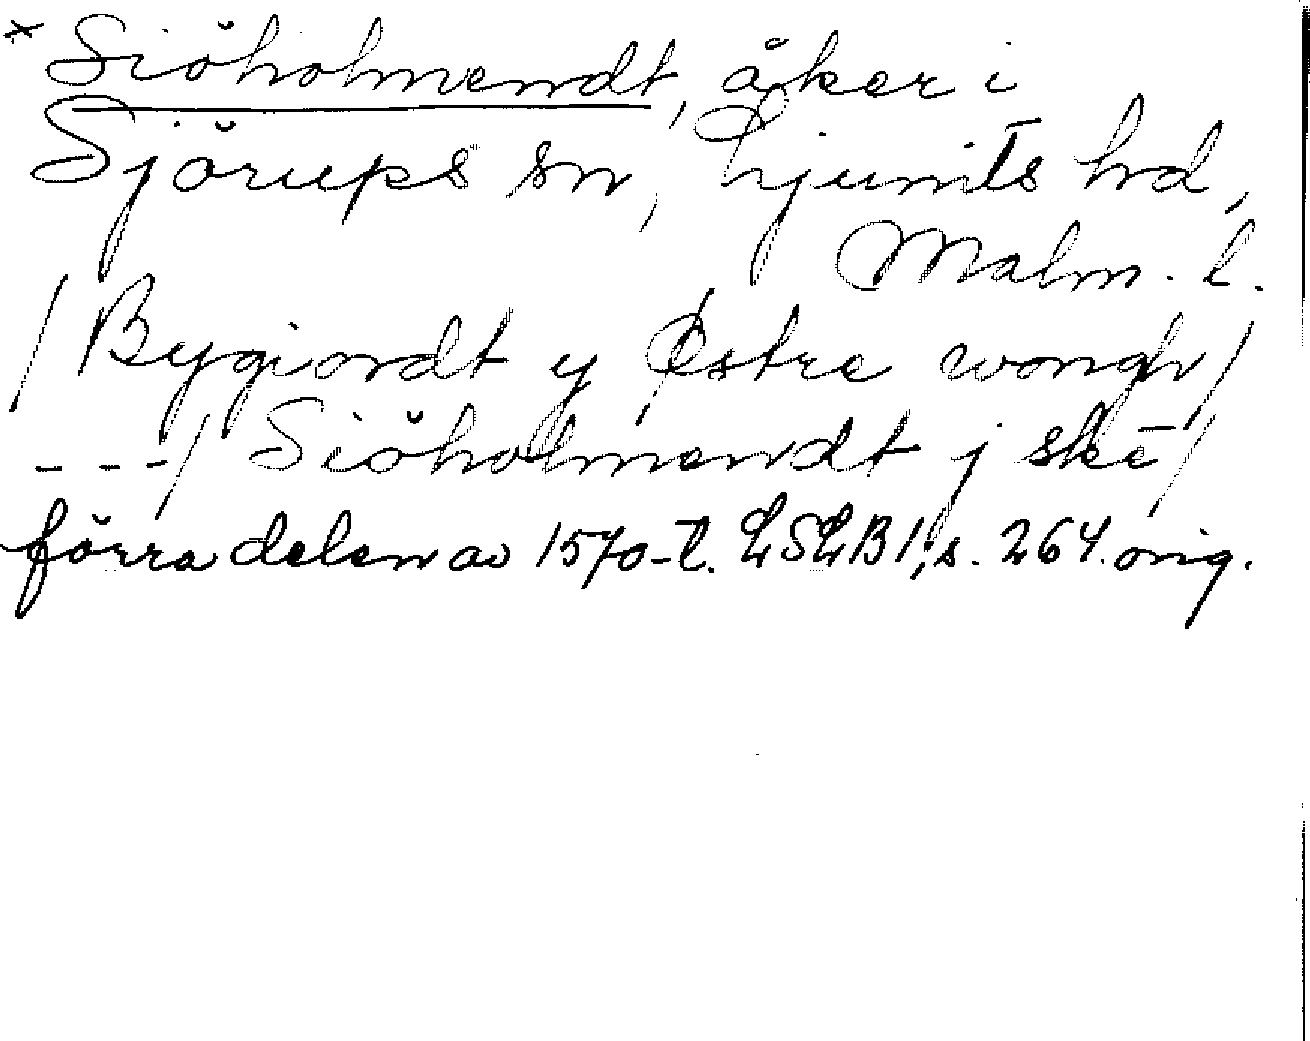 * Siöholmendt, åker i
Sjörups sn, Ljunits hd,
Malm. l.
/ Bygiordt y Østre wongh /
- - - / Siöholmendt j skē /
förra delen av 1570-t. LSLB1, s. 264. orig.